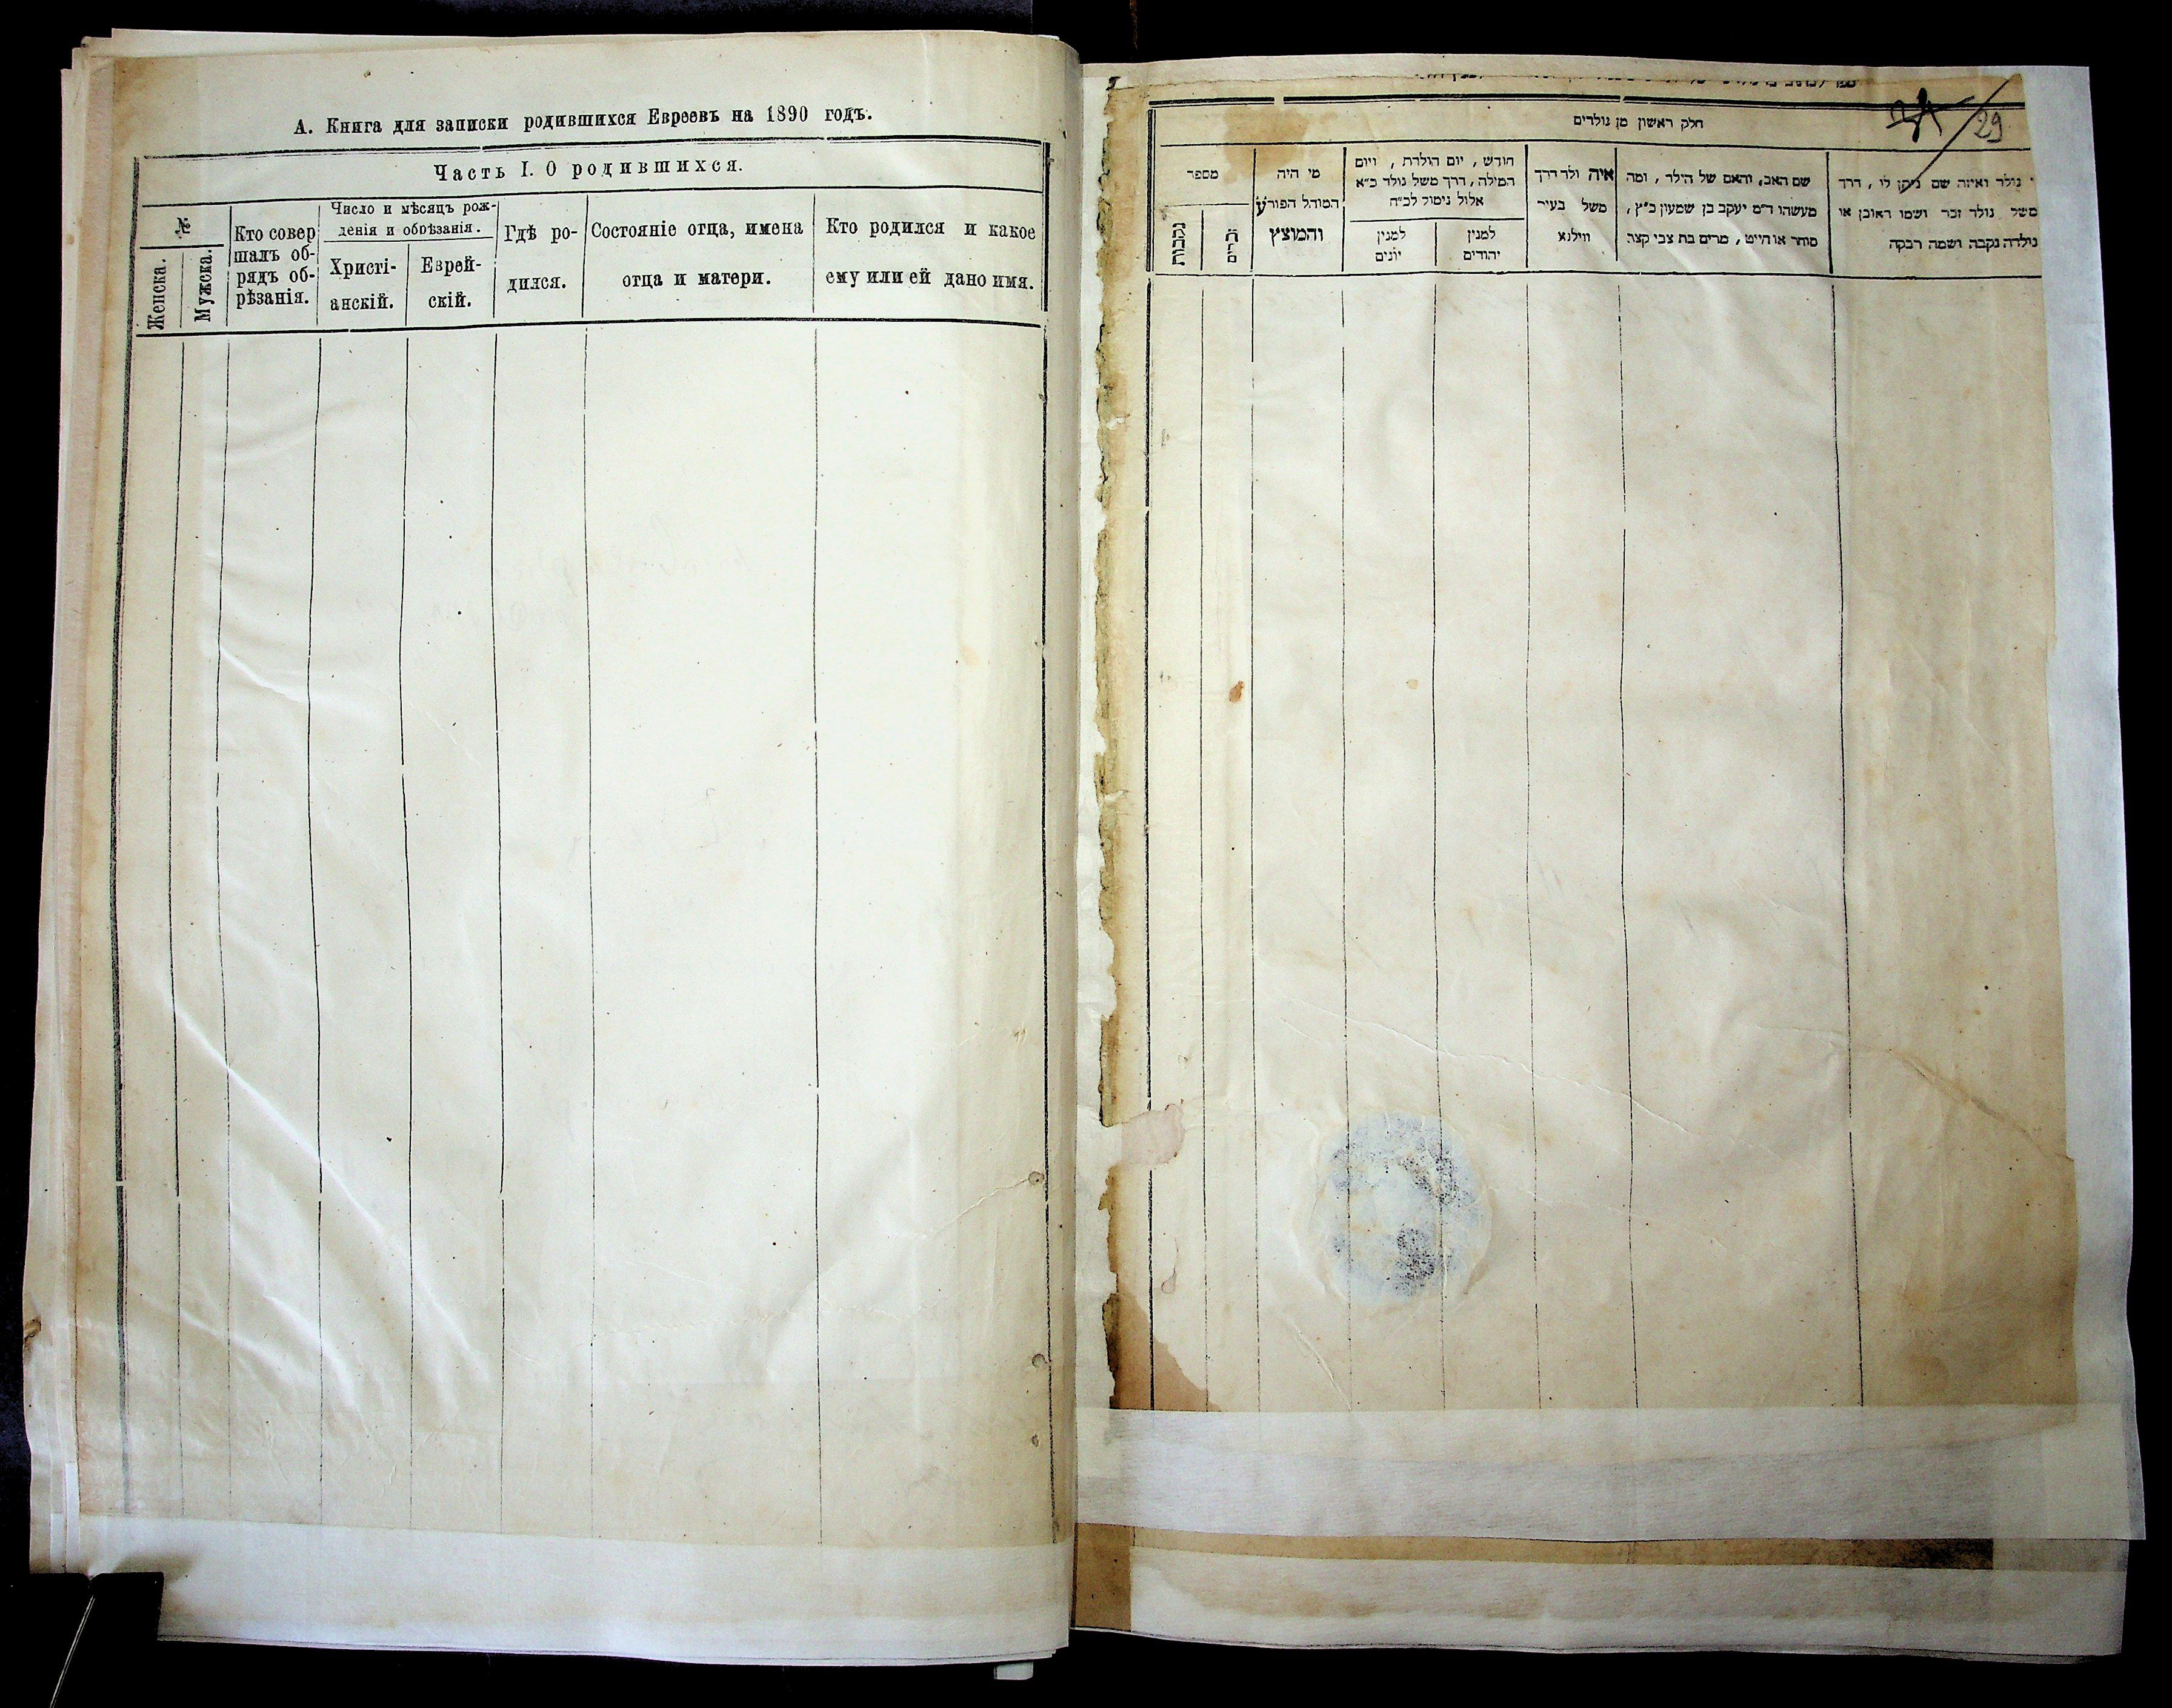 А. Книга для записки родившихся Евреевъ на 1890 годъ.
Часть I. О родившихся.
№
Женска.
Мужска.
Кто совер
шалъ об-
рядъ об-
рѣзанія.
Число и мѣсяцъ рож-
денія и обрѣзанія.
Христі-
анскій.
Еврей-
скій.
Гдѣ ро-
дился.
Состояніе отца, имена
отца и матери.
Кто родился и какое
ему или ей дано имя.
29
חלק ראשון מן נולדים
מספר
נקבות
זכרים
מי היה
המוהל הפורע
והמוצץ
חודש, יום הולדת, ויום
המילה, דרך משל נולד כ״א
אלול נימול לכ״ח
למנין
יונים
למנין
יהודים
איה ולד דרך
משל בעיר
ווילנא
שם האב, והאם של הילד, ומה
מעשהו ד״מ יעקב בן שמעון כ״ץ,
סוחר או חייט, מרים בת צבי קצב
נולד ואיזה שם ניתן לו, דרך
משל נולד זכר ושמו ראובן או
נולדה נקבה ושמה רבקה